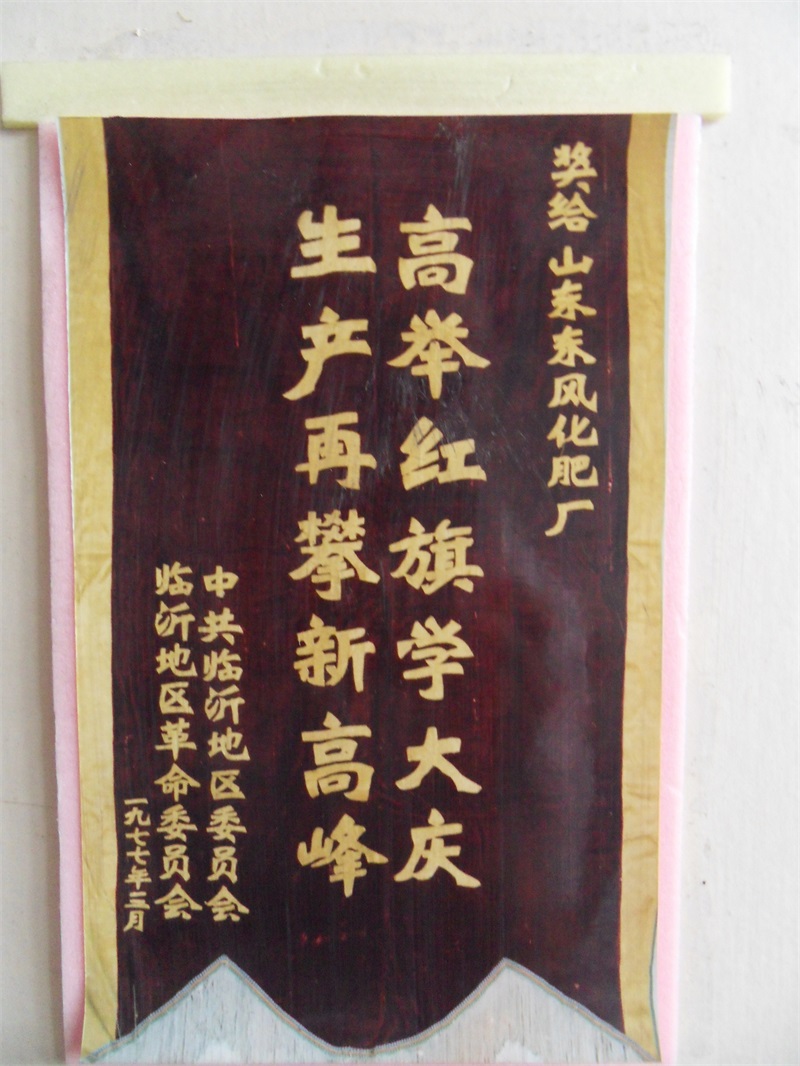 奖给山东东风化肥厂
高举红旗学大庆
生产再攀新高峰
中共临沂地区委员会
临沂地区革命委员会
一九七七年三月